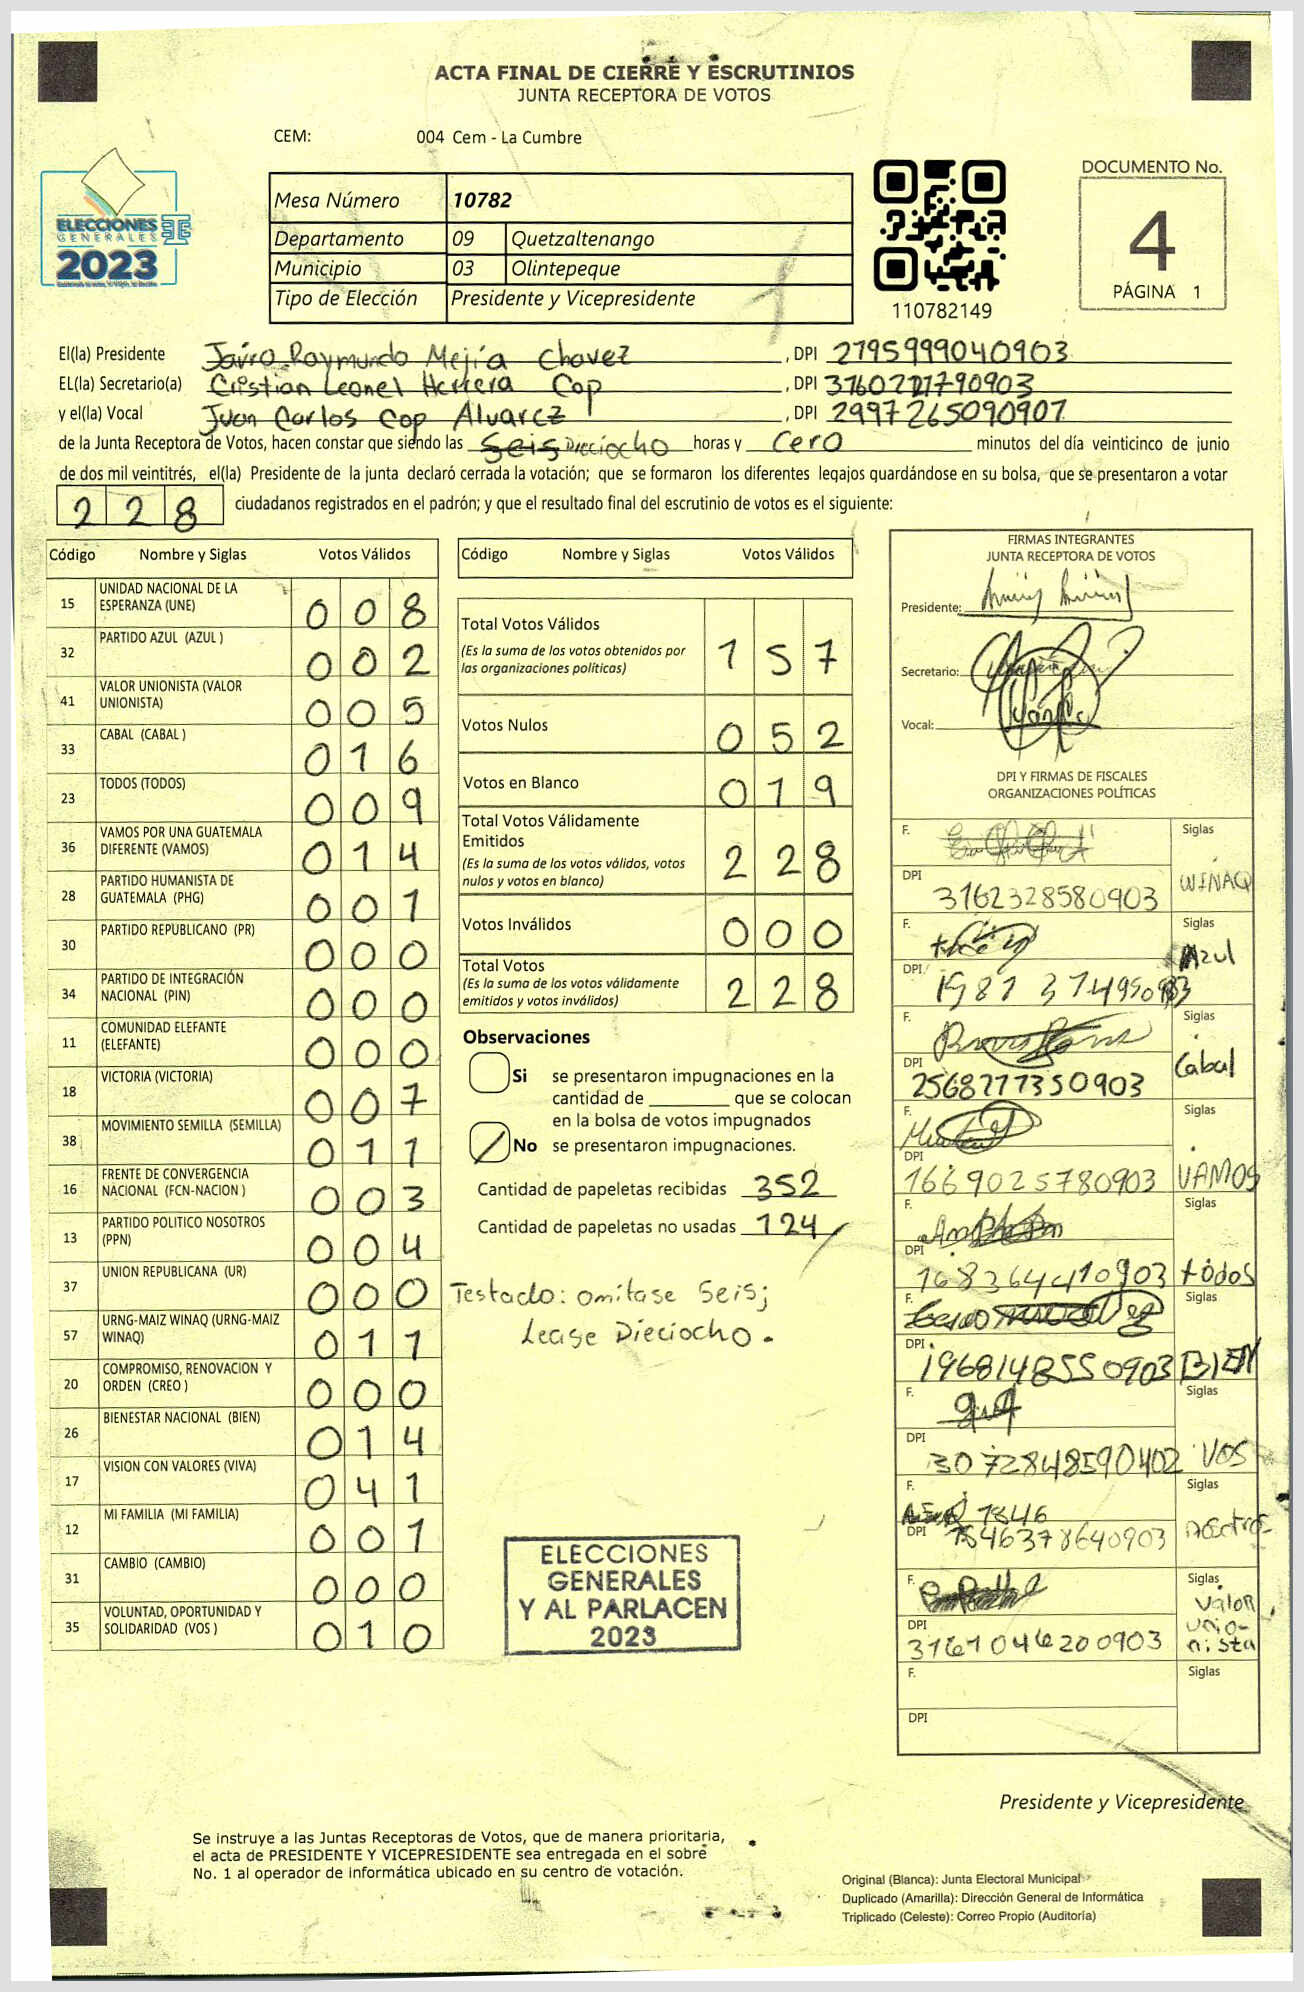 ACTA FINAL DE CIERRE Y ESCRUTINIOS
JUNTA RECEPTORA DE VOTOS
CEM: 004 Cem - La Cumbre
ELECCIONES
GENERALES
2023
Mesa Número 10782
Departamento 09 Quetzaltenango
Municipio 03 Olintepeque
Tipo de Elección Presidente y Vicepresidente
110782149
DOCUMENTO No.
4
PÁGINA 1
El(la) Presidente Jairo Raymundo Mejía Chavez, DPI 2795999040903
EL(la) Secretario(a) Cristian Leonel Herrera Cop, DPI
y el(la) Vocal Juan Carlos Cop Alvarez, DPI 2997265090907
de la Junta Receptora de Votos, hacen constar que siendo las Seis Dieciocho horas y Cero minutos del día veinticinco de junio
de dos mil veintitrés, el(la) Presidente de la junta declaró cerrada la votación; que se formaron los diferentes legajos quardándose en su bolsa, que se presentaron a votar
228 ciudadanos registrados en el padrón; y que el resultado final del escrutinio de votos es el siguiente:
Código Nombre y Siglas Votos Válidos
15 UNIDAD NACIONAL DE LA ESPERANZA (UNE) 008
32 PARTIDO AZUL (AZUL ) 002
41 VALOR UNIONISTA (VALOR UNIONISTA) 005
33 CABAL (CABAL ) 016
23 TODOS (TODOS) 009
36 VAMOS POR UNA GUATEMALA DIFERENTE (VAMOS) 014
28 PARTIDO HUMANISTA DE GUATEMALA (PHG) 001
30 PARTIDO REPUBLICANO (PR) 000
34 PARTIDO DE INTEGRACIÓN NACIONAL (PIN) 000
11 COMUNIDAD ELEFANTE (ELEFANTE) 000
18 VICTORIA (VICTORIA) 007
38 MOVIMIENTO SEMILLA (SEMILLA) 011
16 FRENTE DE CONVERGENCIA NACIONAL (FCN-NACION ) 003
13 PARTIDO POLITICO NOSOTROS (PPN) 004
37 UNION REPUBLICANA (UR) 000
57 URNG-MAIZ WINAQ (URNG-MAIZ WINAQ) 011
20 COMPROMISO, RENOVACION Y ORDEN (CREO ) 000
26 BIENESTAR NACIONAL (BIEN) 014
17 VISION CON VALORES (VIVA) 041
12 MI FAMILIA (MI FAMILIA) 001
31 CAMBIO (CAMBIO) 000
35 VOLUNTAD, OPORTUNIDAD Y SOLIDARIDAD (VOS ) 010
Código Nombre y Siglas Votos Válidos
Total Votos Válidos 157
(Es la suma de los votos obtenidos por
las organizaciones políticas)
Votos Nulos 052
Votos en Blanco 019
Total Votos Válidamente
Emitidos 228
(Es la suma de los votos válidos, votos
nulos y votos en blanco)
Votos Inválidos 000
Total Votos 228
(Es la suma de los votos válidamente
emitidos y votos inválidos)
Observaciones
Si se presentaron impugnaciones en la
cantidad de ________ que se colocan
en la bolsa de votos impugnados
No se presentaron impugnaciones.
Cantidad de papeletas recibidas 352
Cantidad de papeletas no usadas 124
Testado: omitase Seis;
Lease Dieciocho.
ELECCIONES
GENERALES
Y AL PARLACEN
2023
FIRMAS INTEGRANTES
JUNTA RECEPTORA DE VOTOS
Presidente:
Secretario:
Vocal:
DPI Y FIRMAS DE FISCALES
ORGANIZACIONES POLÍTICAS
F. Siglas
DPI 3162328580903 WINAQ
F. Siglas
DPI Azul
F. Siglas
DPI 2568277350903 Cabal
F. Siglas
DPI 1669025780903 VAMOS
F. Siglas
DPI 1683644410903 todos
F. Siglas
DPI 1968148550903 BIEN
F. Siglas
DPI 3072848590402 VOS
F. Siglas
DPI
F. Siglas
DPI 3161046200903 valor unionista
F. Siglas
DPI
Presidente y Vicepresidente
Se instruye a las Juntas Receptoras de Votos, que de manera prioritaria,
el acta de PRESIDENTE Y VICEPRESIDENTE sea entregada en el sobre
No. 1 al operador de informática ubicado en su centro de votación.
Original (Blanca): Junta Electoral Municipal
Duplicado (Amarilla): Dirección General de Informática
Triplicado (Celeste): Correo Propio (Auditoría)